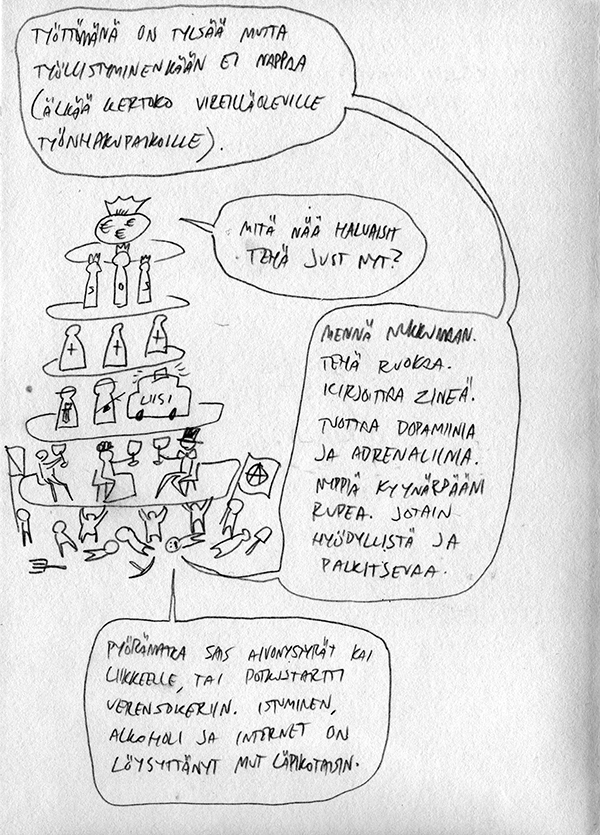 TYÖTTÖMÄNÄ ON TYLSÄÄ MUTTA
TYÖLLISTYMINENKÄÄN EI NAPPAA
(ÄLKÄÄ KERTOKO VIREILLÄOLEVILLE
TYÖNHAKUPAIKOILLE).
MITÄ NÄÄ HALUAISIT
TEHÄ JUST NYT?
€ € €
S O S
LIISI
MENNÄ NUKKUMAAN.
TEHÄ RUOKAA.
KIRJOITTAA ZINEÄ.
TUOTTAA DOPAMIINIA
JA ADRENALIINIA.
NYPPIÄ KYYNÄRPÄÄNI
RUPEA. JOTAIN
HYÖDYLLISTÄ JA
PALKITSEVAA.
A
PYÖRÄMATKA SAIS AIVONYSTYRÄT KAI
LIIKKEELLE, TAI POTKUSTARTTI
VERENSOKERIIN. ISTUMINEN,
ALKOHOLI JA INTERNET ON
LÖYSYTTÄNYT MUT LÄPIKOTAISIN.